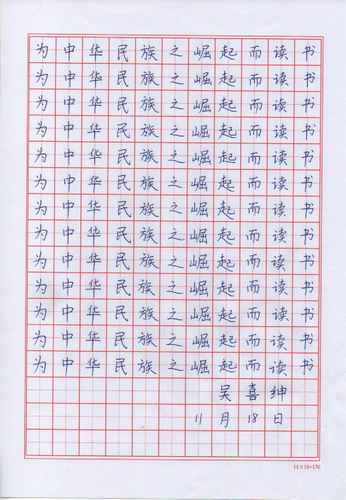 为中华民族之崛起而读书
为中华民族之崛起而读书
为中华民族之崛起而读书
为中华民族之崛起而读书
为中华民族之崛起而读书
为中华民族之崛起而读书
为中华民族之崛起而读书
为中华民族之崛起而读书
为中华民族之崛起而读书
为中华民族之崛起而读书
为中华民族之崛起而读书
为中华民族之崛起而读书
为中华民族之崛起而读书
吴喜绅
11月18日
11×16=176